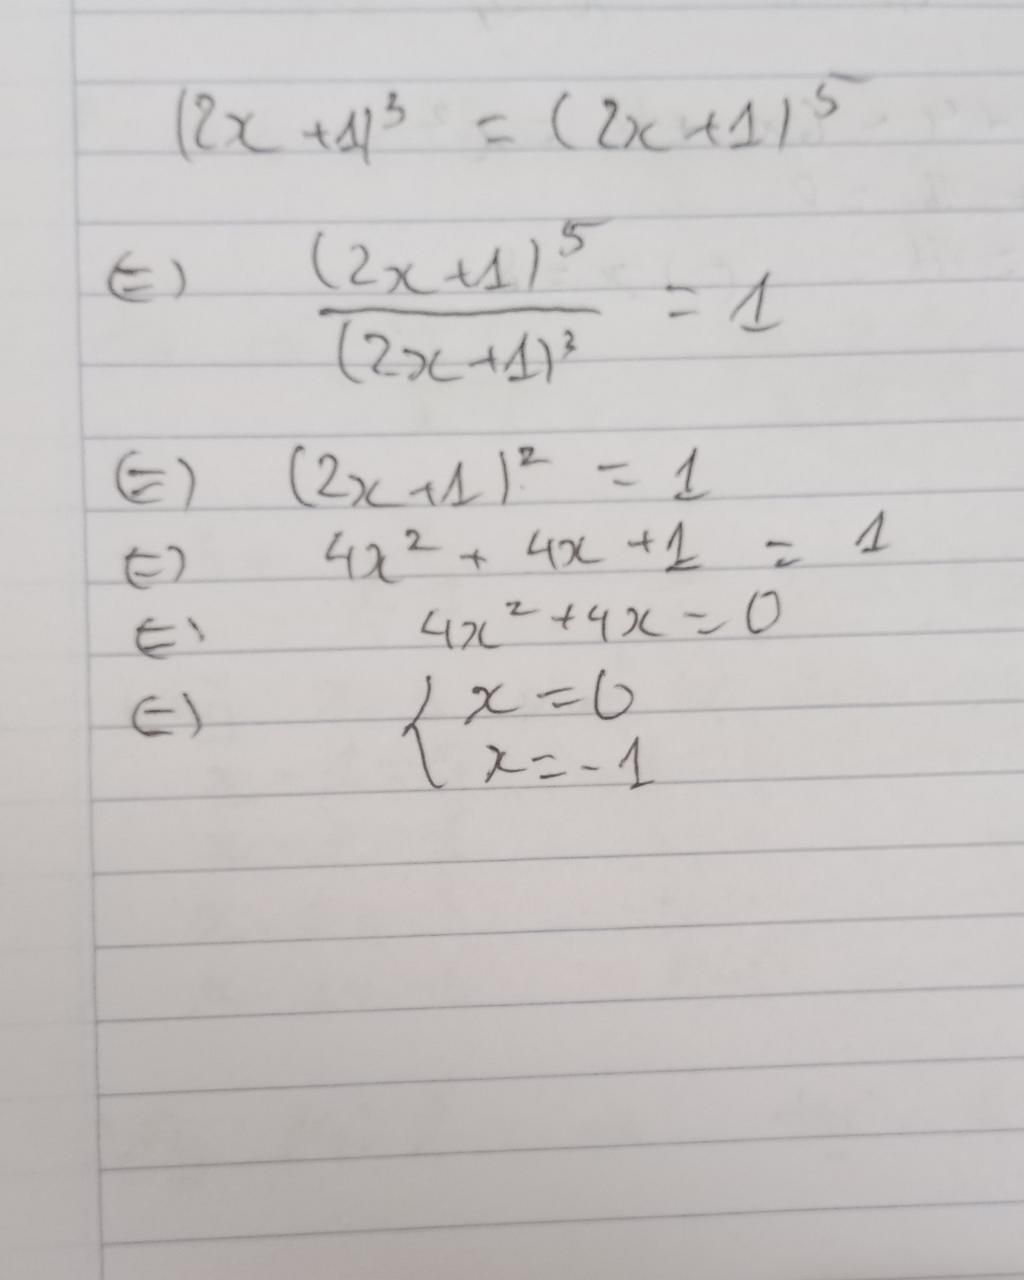 (2x +1)³ = (2x+1)⁵
⇔ (2x+1)⁵ / (2x+1)³ = 1
⇔ (2x+1)² = 1
⇔ 4x² + 4x +1 = 1
⇔ 4x² +4x = 0
⇔ { x = 0
x = -1